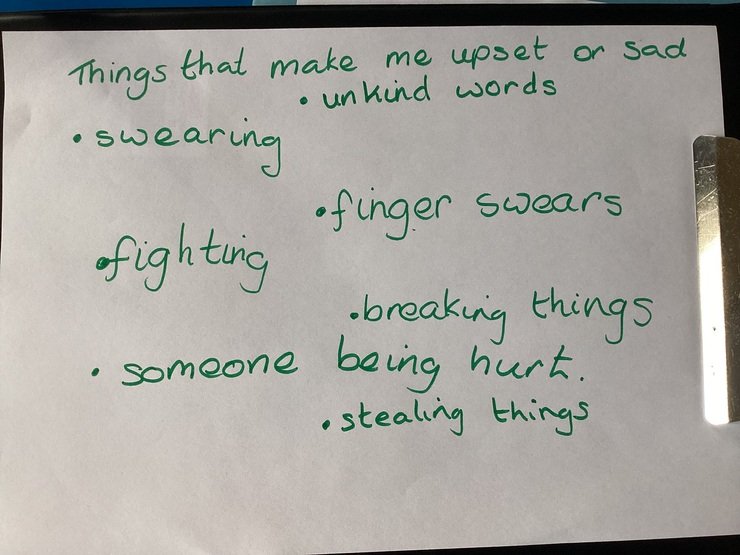 Things that make me upset or sad
• unkind words
• swearing
• finger swears
• fighting
• breaking things
• someone being hurt.
• stealing things